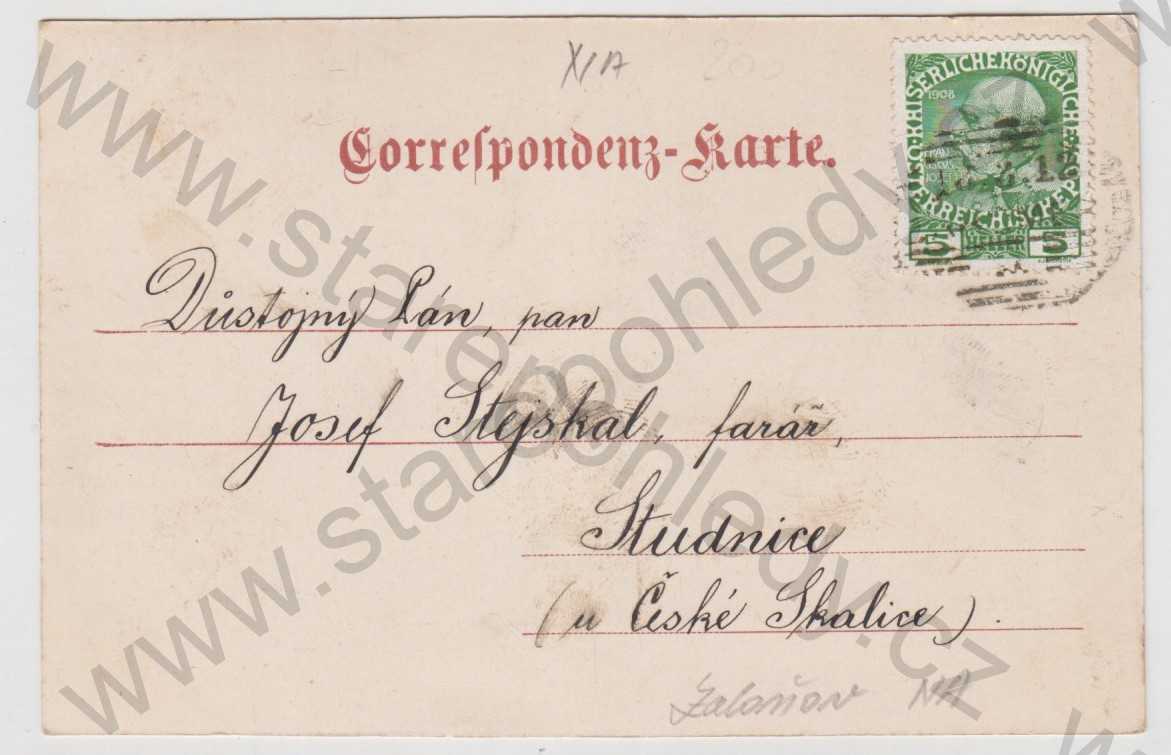 XIA
200
Correspondenz-Karte.
KAISERLICHEKÖNIGLICHE ÖSTERREICHISCHE POST
1908
5 HELLER 5
12
Důstojný Pán, pan
Josef Stejskal, farář,
Studnice
(u České Skalice).
NA
www.starepohledy.cz
www.starepohledy.cz